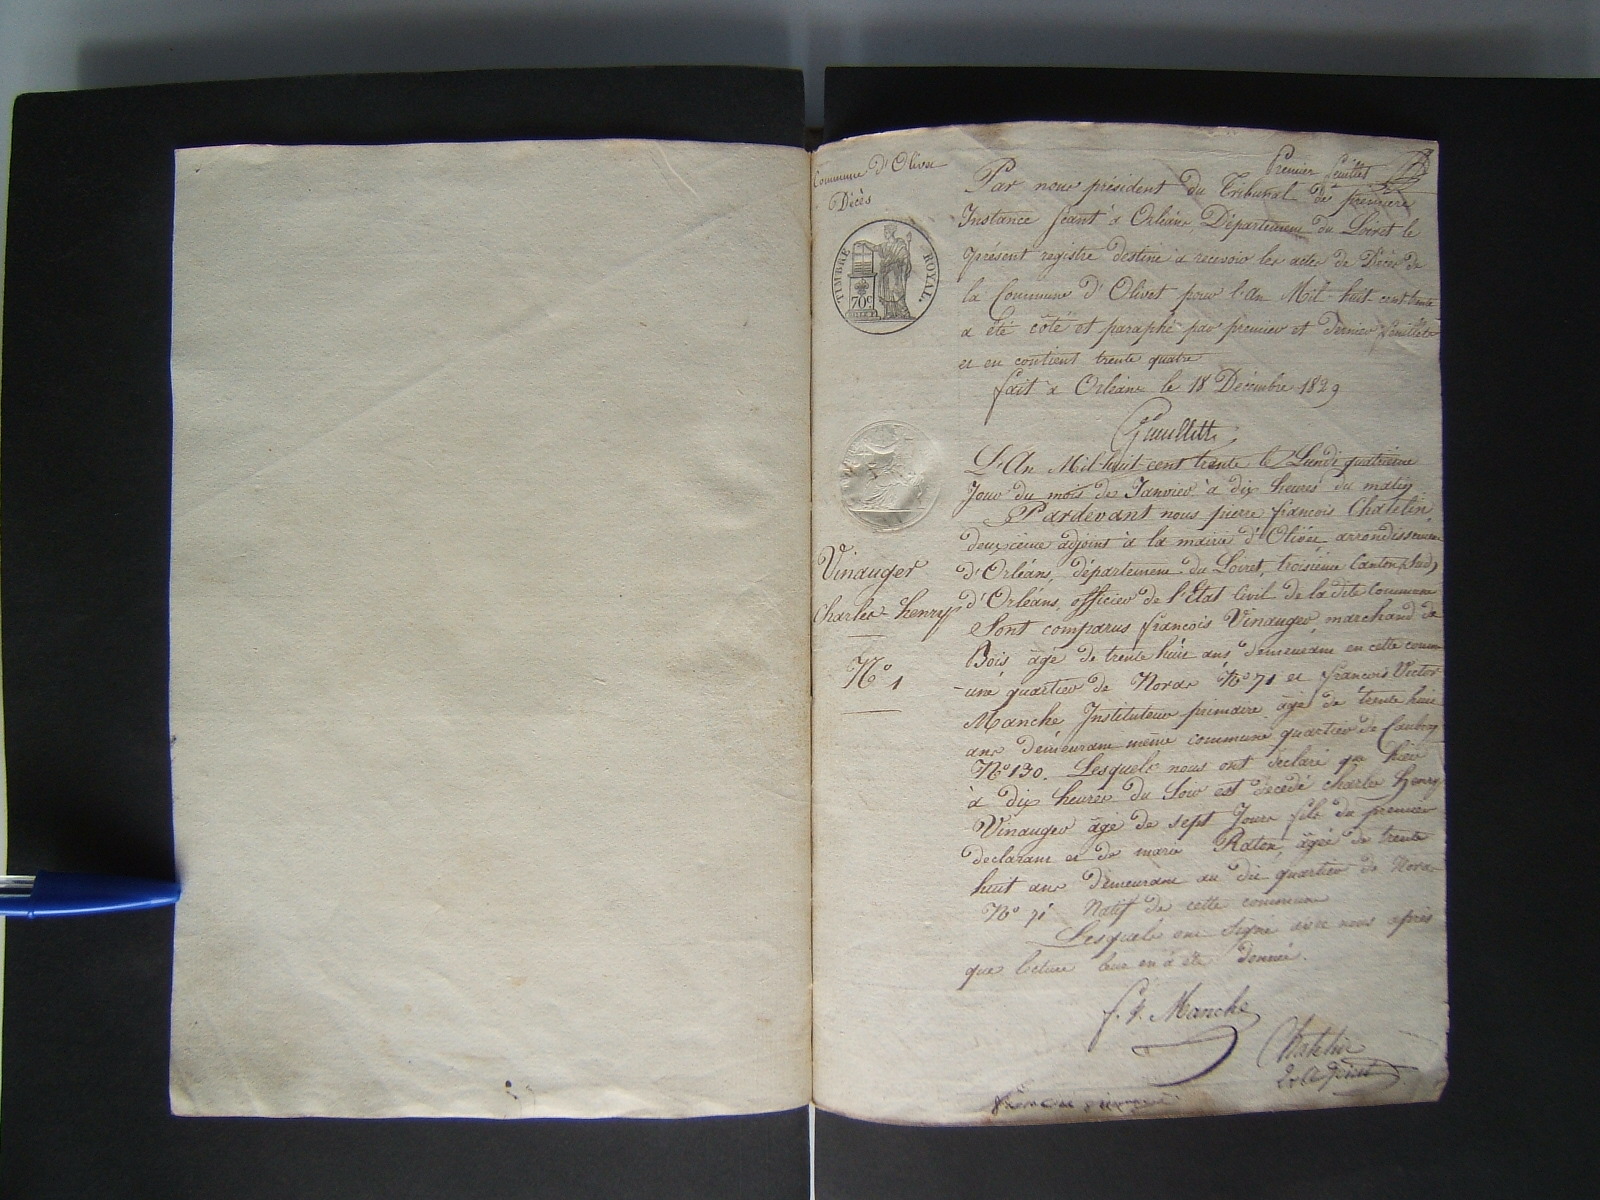 Commune d'Olivet
Décès
Premier feuillet
TIMBRE ROYAL.
70c
Par nous président du Tribunal de première
Instance séant à Orléans, Département du Loiret le
présent registre destiné a recevoir les actes de Décès de
la Commune d'Olivet pour l'An Mil huit cent trente
a été coté et paraphé par premier et dernier feuillets
et en contient trente quatre
fait à Orléans le 18 Décembre 1829
L'An Mil huit cent trente le Lundi quatrième
Jour du mois de Janvier à dix heures du matin
Pardevant nous pierre francois Chatelin
deuxième adjoint à la mairie d'Olivet arrondissement
d'Orléans, département du Loiret, troisième Canton (Sud)
d'Orléans, officier de l'Etat Civil de la dite Commune
Sont comparus francois Vinauger marchand de
Bois âgé de trente huit ans demeurant en cette comm
-une quartier de Noras N° 71 et francois Victor
Manche Instituteur primaire âgé de trente huit
ans demeurant même commune quartier de
N° 130. Lesquels nous ont déclaré que hier
à dix heures du Soir est décédé charles henry
Vinauger âgé de sept Jours fils du premier
declarant et de marie Raton, âgée de trente
huit ans demeurant au dit quartier de Noras
N° 71 Natif de cette commune
Lesquels ont Signé avec nous après
que lecture leur en a été donnée.
Vinauger
Charles-henry
N° 1
f. V. Manche
2e adjoint